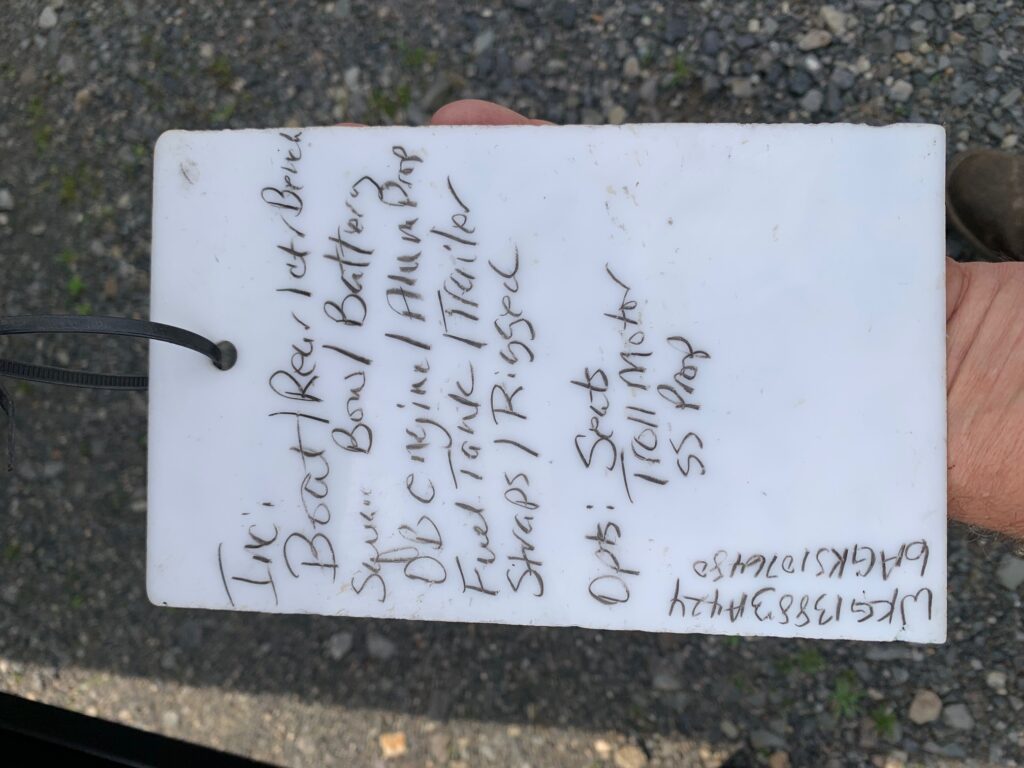 Inc:
Boat / Rear 1ct / Bench
Square Bow / Battery
OB Engine / Alum Prop
Fuel Tank / Trailer
Straps / Rigged
Opts: Seats
Troll Motor
SS Prop
6AGKS1076450